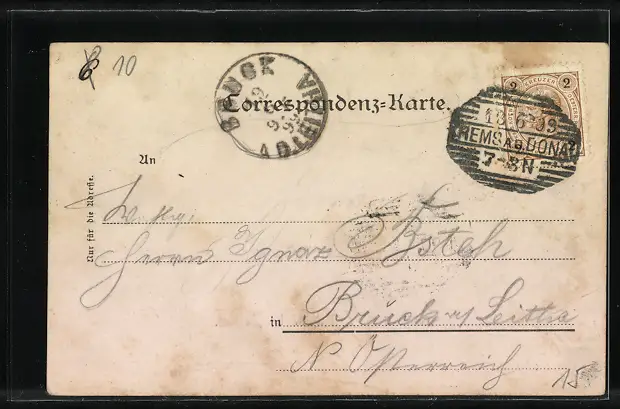 6 10
BRUCK A.D. LEITHA
Correspondenz-Karte.
2 KREUZER 2
10 6 99
KREMS A.D. DONAU
7-8N
An
Nur für die Adresse.
Herrn Ignaz
in Bruck a/ Leitha
N. Österreich
15